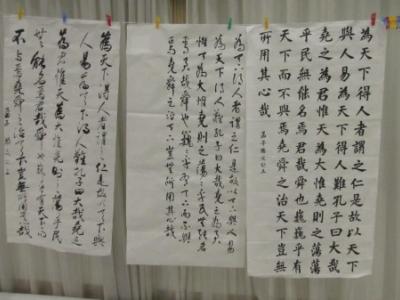 為天下得人者謂之仁是故以天下
與人易為天下得人難孔子曰大哉
堯之為君惟天為大惟堯則之蕩蕩
乎民無能名焉君哉舜也巍巍乎有
天下而不與焉堯舜之治天下豈無
所用其心哉
為天下得人者謂之仁是故以天下與人易
為天下得人難孔子曰大哉堯之為君
惟天為大惟堯則之蕩蕩乎民無能名
焉君哉舜也巍巍乎有天下而不與
焉堯舜之治天下豈無所用其心哉
為天下得人者謂之仁是故以天下與
人易為天下得人難孔子曰大哉堯之
為君惟天為大惟堯則之蕩蕩乎民
無能名焉君哉舜也巍巍乎有天下而
不與焉堯舜之治天下豈無所用其心哉